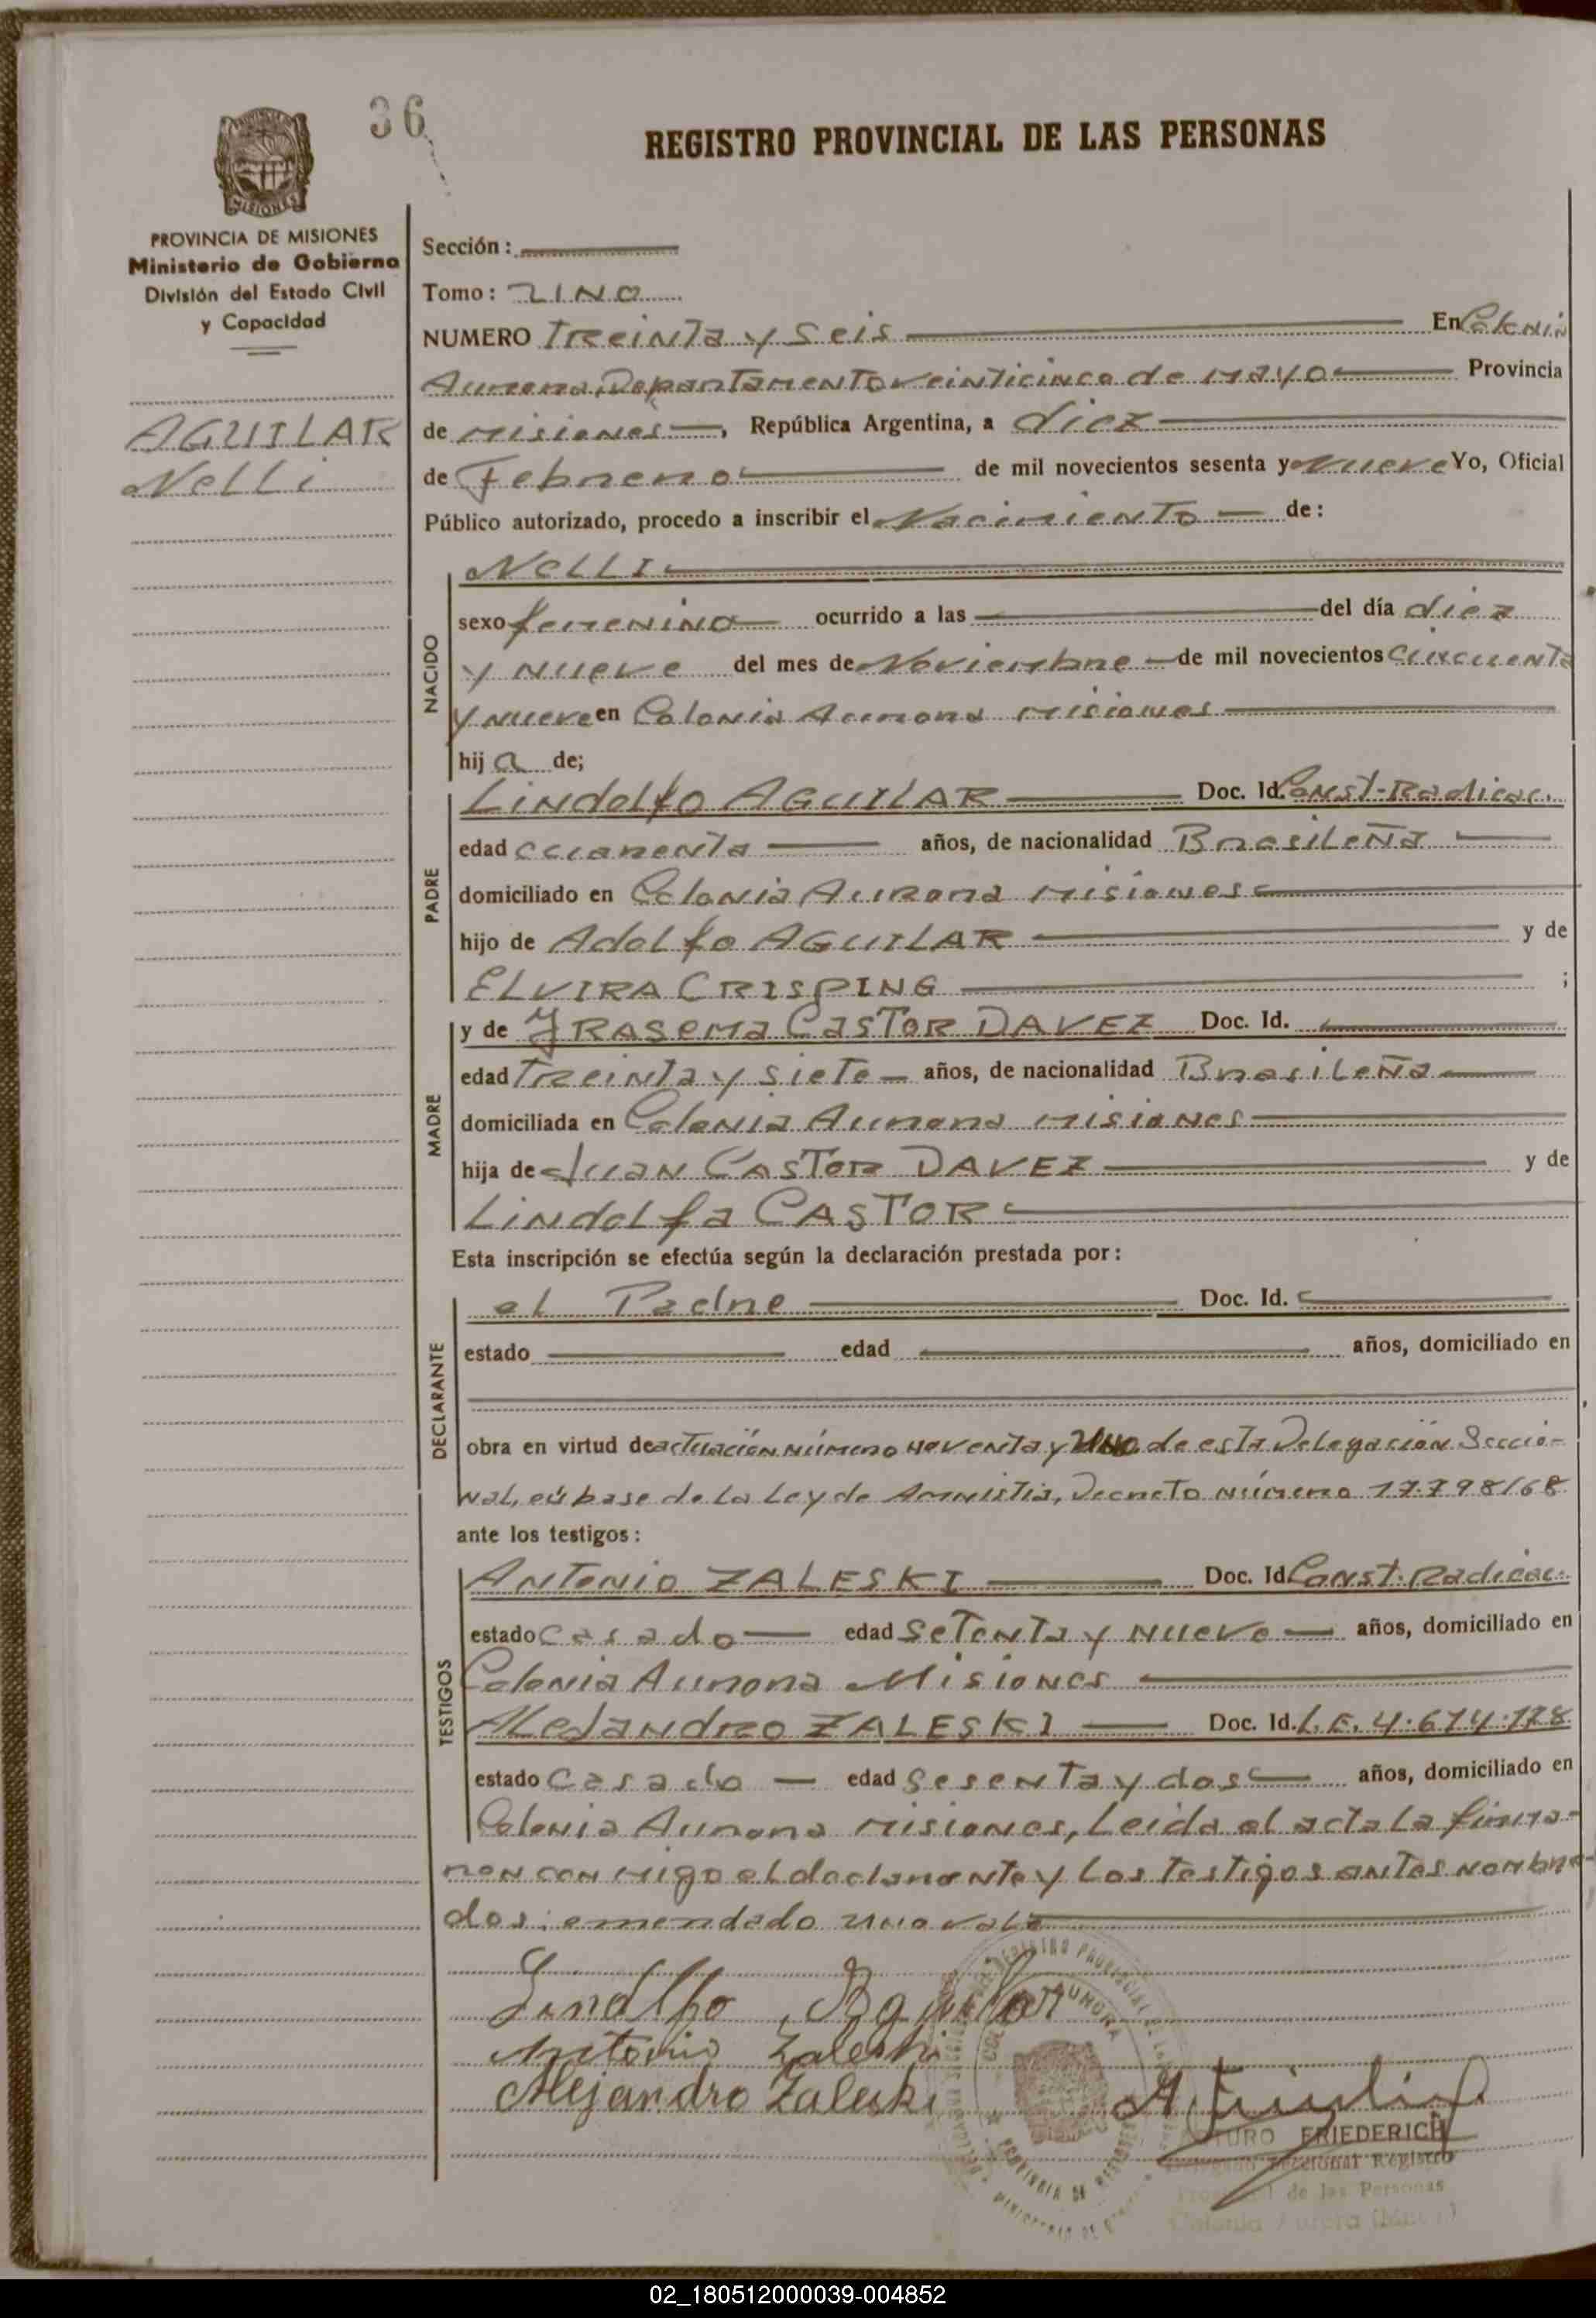 36
REGISTRO PROVINCIAL DE LAS PERSONAS
MISIONES
PROVINCIA DE MISIONES
Ministerio de Gobierno
División del Estado Civil
y Capacidad
AGUILAR
Nelli
Sección:
Tomo: UNO
NUMERO Treinta y Seis En Colonia
Aurora, Departamento Veinticinco de Mayo Provincia
de Misiones, República Argentina, a diez
de Febrero de mil novecientos sesenta y nueve Yo, Oficial
Público autorizado, procedo a inscribir el Nacimiento de:
NACIDO
NELLI
sexo femenino ocurrido a las del día diez
y nueve del mes de Noviembre de mil novecientos cincuenta
y nueve en Colonia Aurora Misiones
hij a de;
PADRE
Lindolfo AGUILAR Doc. Id. Const. Radicac.
edad cuarenta años, de nacionalidad Brasileña
domiciliado en Colonia Aurora Misiones
hijo de Adolfo AGUILAR y de
ELVIRA CRISPING ;
MADRE
y de IRASEMA CASTOR DAVEZ Doc. Id.
edad Treinta y siete años, de nacionalidad Brasileña
domiciliada en Colonia Aurora Misiones
hija de Juan CASTOR DAVEZ y de
Lindolfa CASTOR
Esta inscripción se efectúa según la declaración prestada por:
DECLARANTE
el Padre Doc. Id.
estado edad años, domiciliado en
obra en virtud de actuación número noventa y uno de esta Delegación Seccio-
nal, en base de la Ley de Amnistia, Decreto número 17.798/68
ante los testigos:
TESTIGOS
Antonio ZALESKI Doc. Id. Const. Radicac.
estado casado edad setenta y nueve años, domiciliado en
Colonia Aurora Misiones
Alejandro ZALESKI Doc. Id. L.E. 4.674.178
estado casado edad sesenta y dos años, domiciliado en
Colonia Aurora Misiones, Leida el acta la firma-
ron con migo el declarante y los testigos antes nombra-
dos: emendado uno vale
Lindolfo Aguilar
Antonio Zaleski
Alejandro Zaleski
ARTURO FRIEDERICH
Delegado Seccional Registro
Provincial de las Personas
Colonia Aurora (Mnes.)
02_180512000039-004852